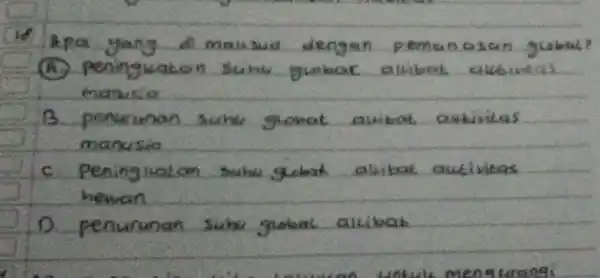 18 Apa yang di maksud dengan pemanasan global?
A. peningkatan suhu global akibat aktivitas
manusia
B. penurunan suhu global akibat aktivitas
manusia
C. Peningkatan suhu global akibat aktivitas
hewan
D. penurunan suhu global akibat
untuk mengurangi